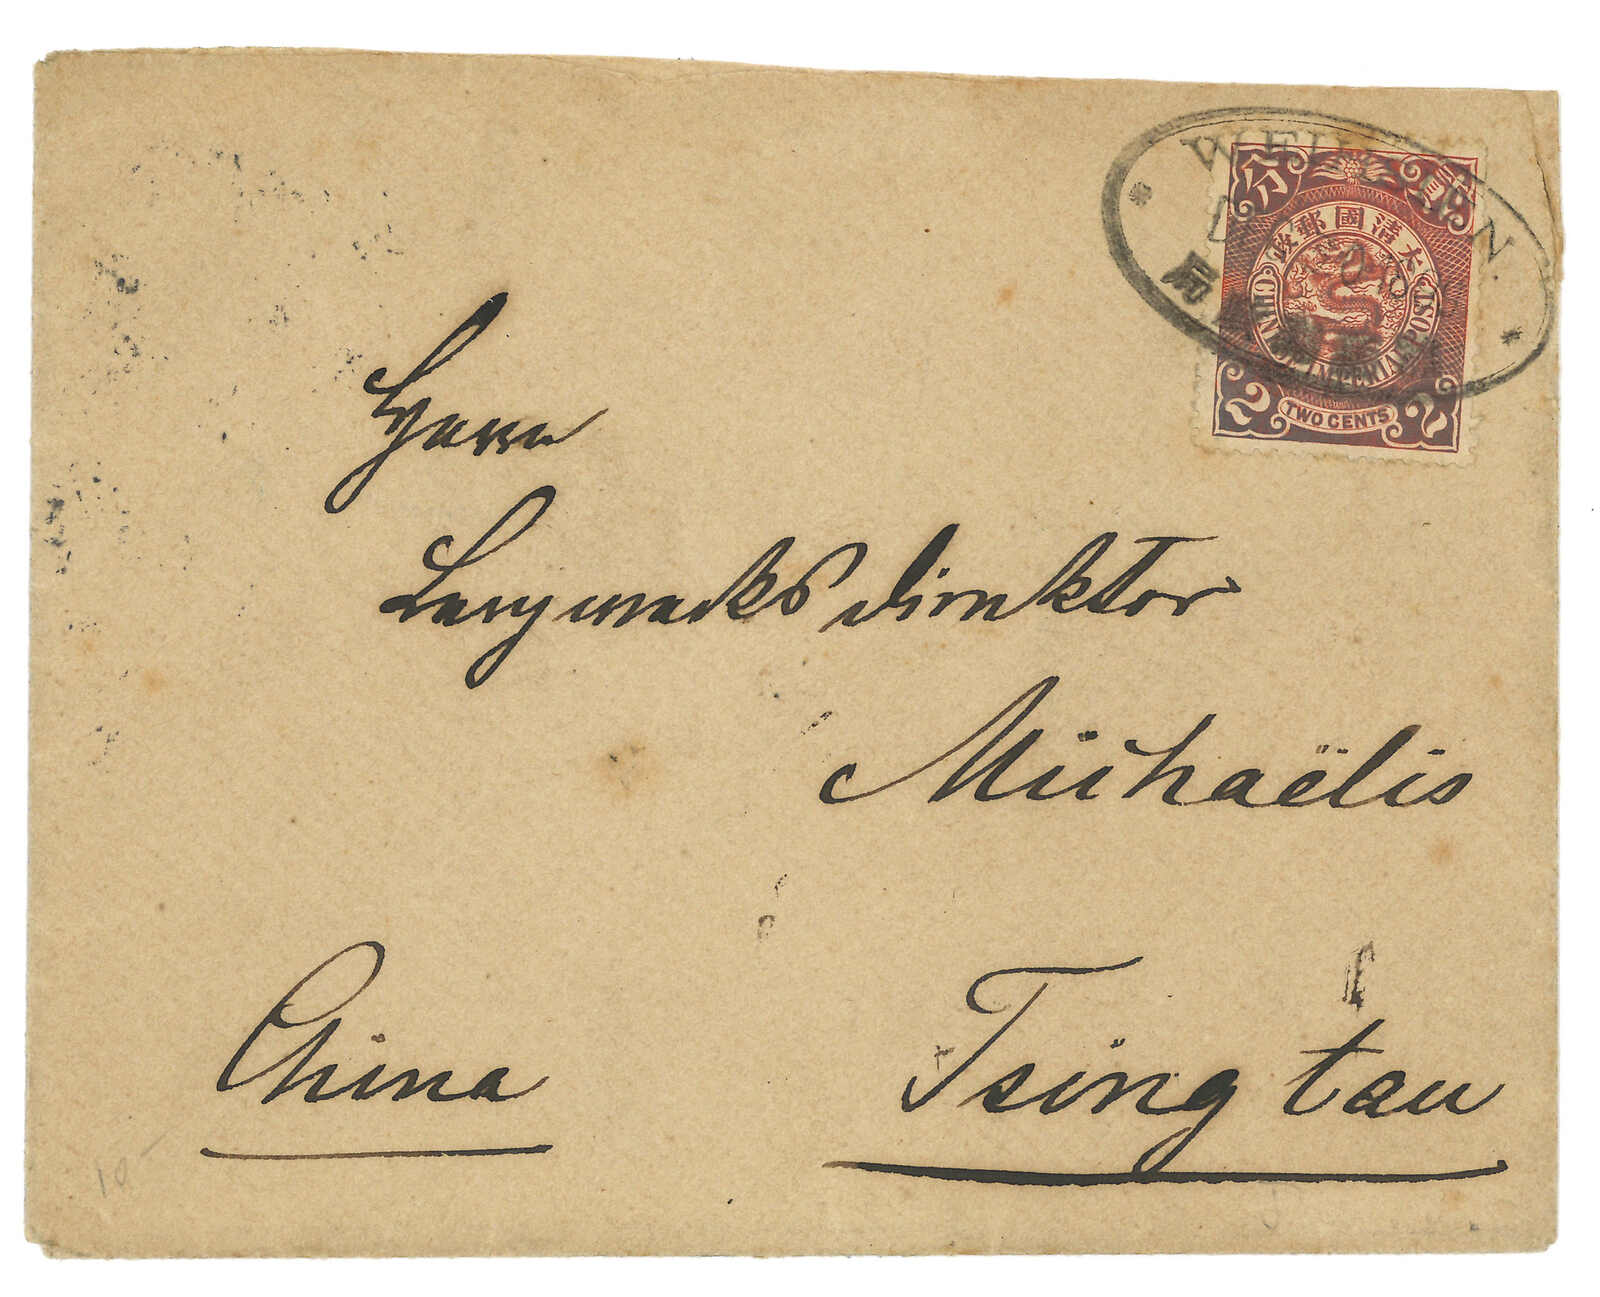 WEIHSIEN.
局
分 貳
大清國郵政
CHINESE IMPERIAL POST
2 TWO CENTS 2
Herrn
Bergwerksdirektor
Michaëlis
China
Tsingtau
10